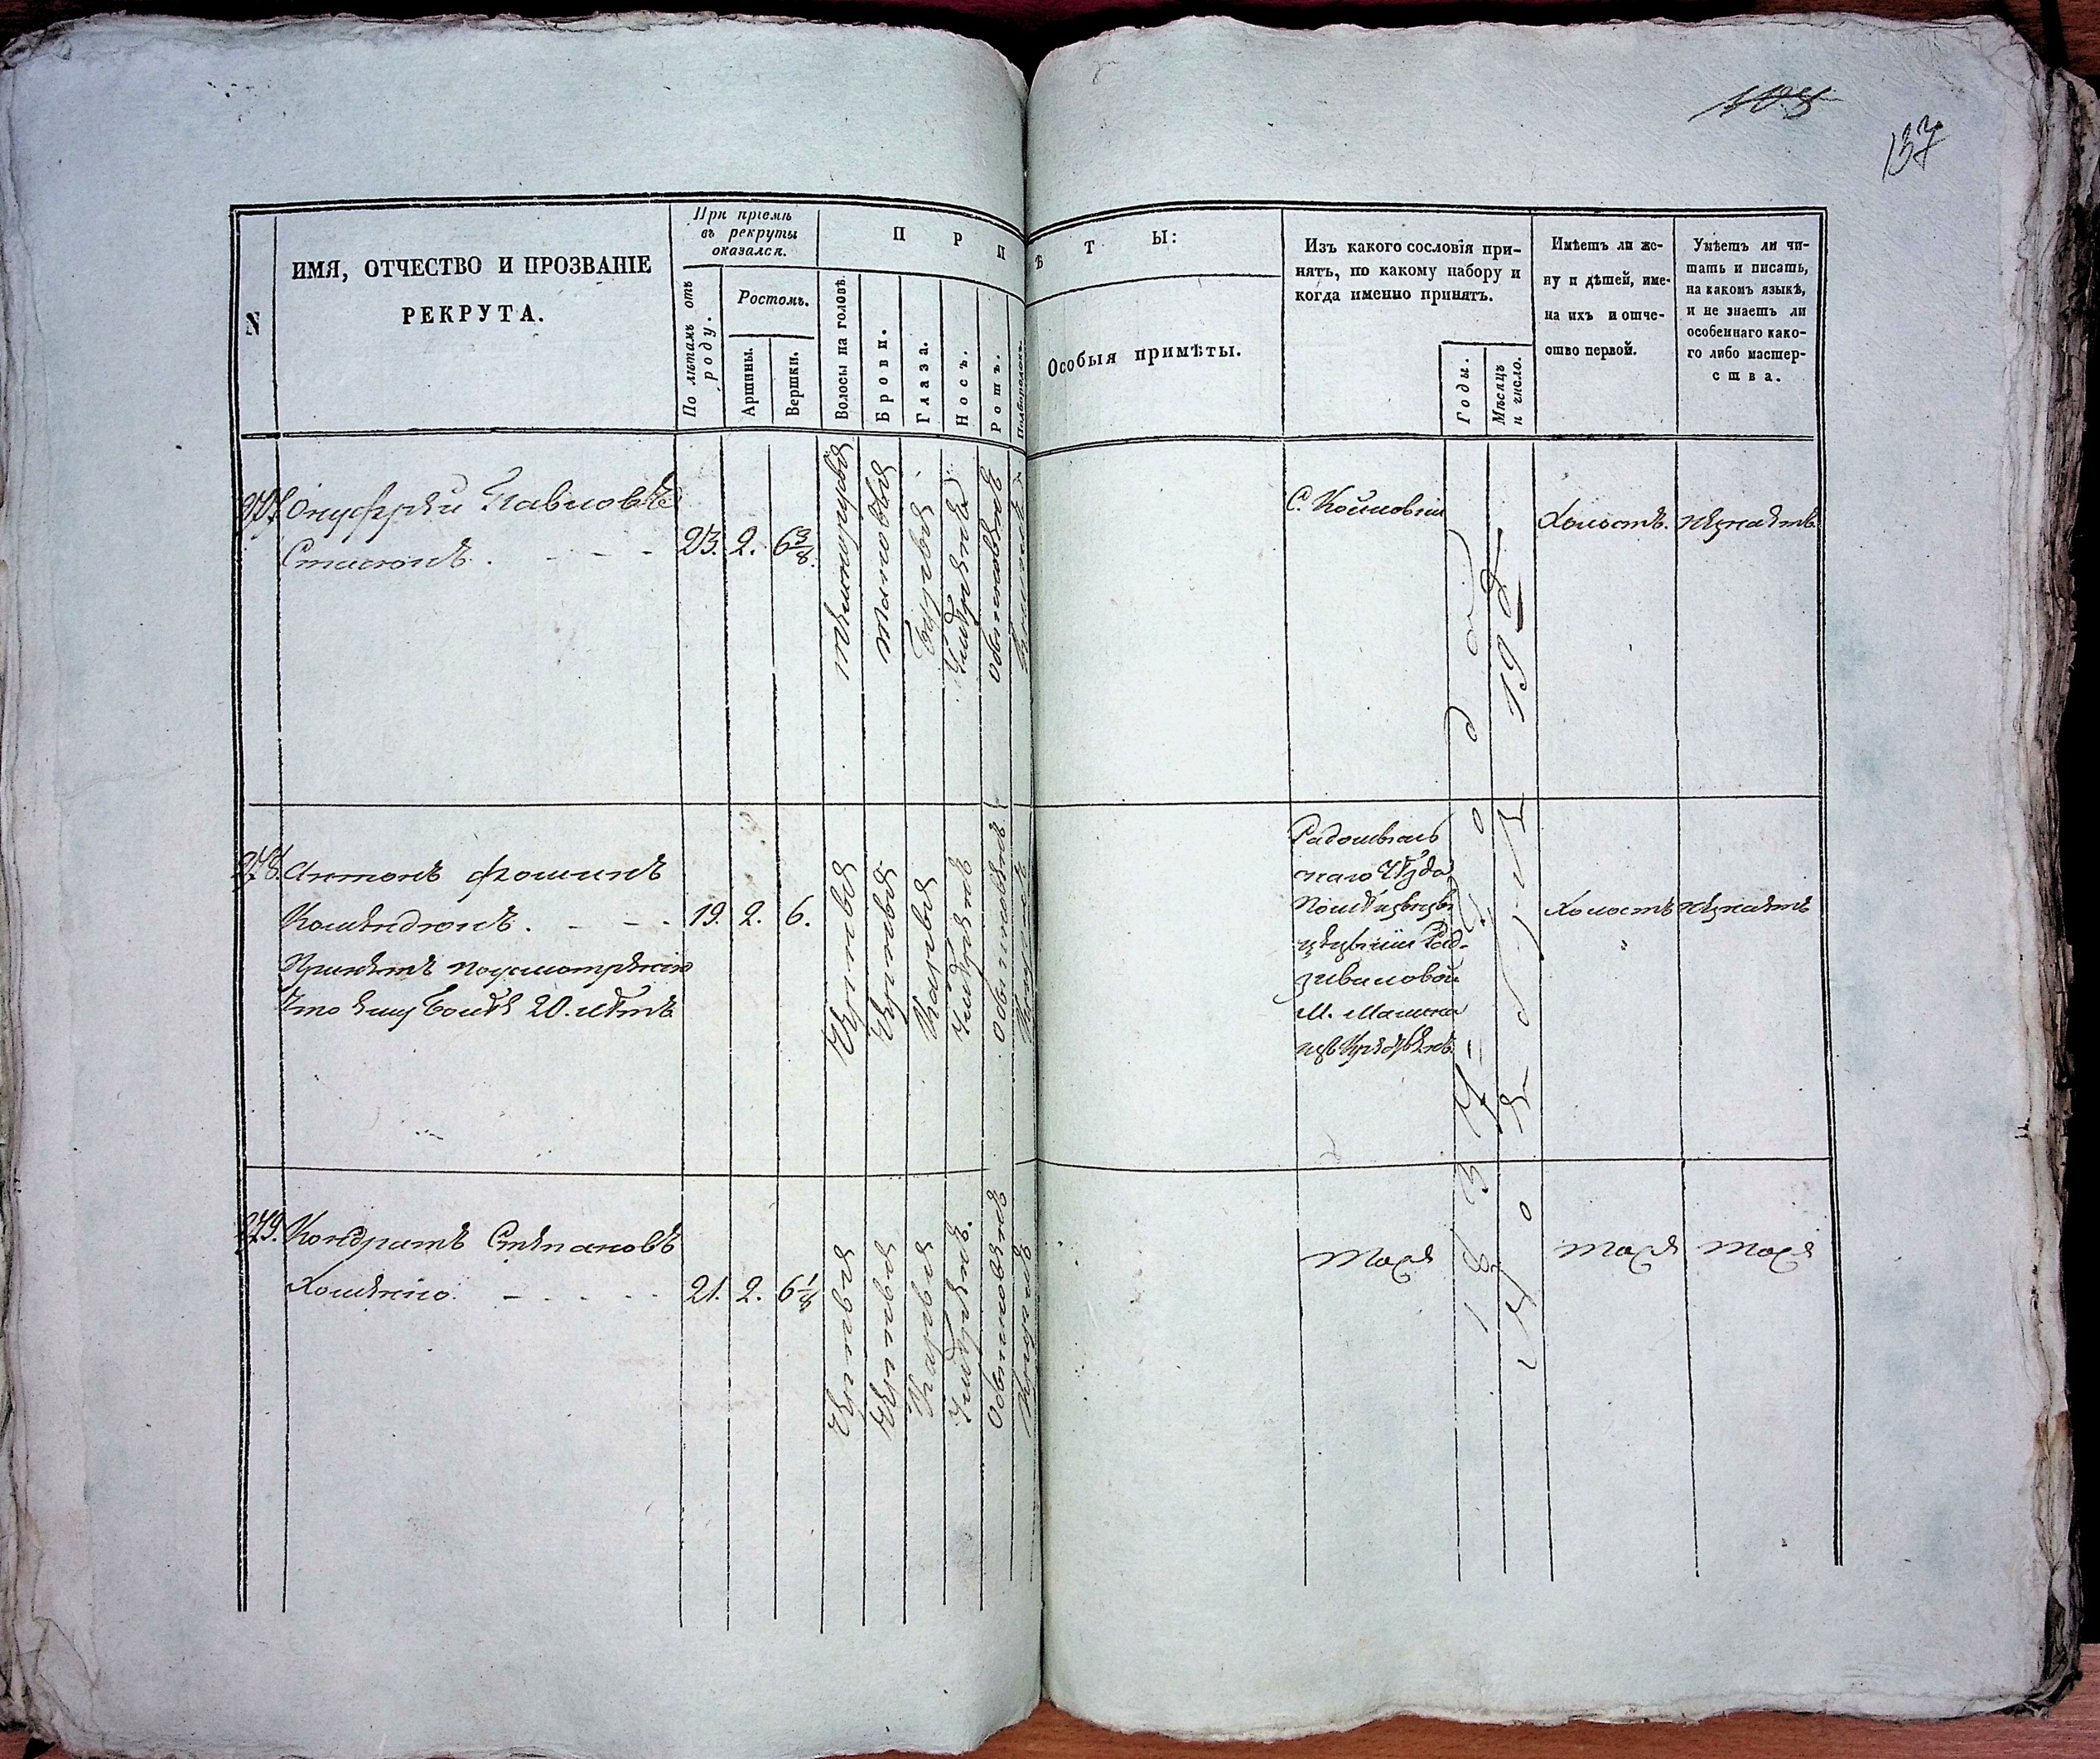 108
137
N
ИМЯ, ОТЧЕСТВО И ПРОЗВАНІЕ
РЕКРУТА.
При пріемѣ
въ рекруты
оказался.
По лѣтамъ отъ
роду.
Ростомъ.
Аршины.
Вершки.
П Р И
Волосы на головѣ.
Брови.
Глаза.
Носъ.
Ротъ.
Подбородокъ.
Ѣ Т Ы:
Особыя примѣты.
Изъ какого сословія при-
нятъ, по какому набору и
когда именно принятъ.
Годы.
Мѣсяцъ
и число.
Имѣетъ ли же-
ну и дѣтей, имѐ-
на ихъ и отче-
ство первой.
Умѣетъ ли чи-
тать и писать,
на какомъ языкѣ,
и не знаетъ ли
особеннаго како-
го либо мастер-
ства.
277. Онуфрѣй Павловъ
23. 2. 6 3/8.
темнорусыя
таковыя
умѣрен
обыкновенъ
Холостъ. незнаетъ
278. Антонъ Фоминъ
19. 2. 6.
Принетъ поусмотренію
что ему болѣе 20. лѣтъ
черныя
черныя
карыя
умѣренъ
обыкновенъ
кругл
Радомысль
скаго Уѣзда
Рад-
зивиловой
М. Малина
Холостъ незнаетъ
279. Кондратъ Степановъ
Хоменко.
21. 2. 6 1/8
черныя
черныя
карыя
умѣренъ.
обыкновенъ
круглъ
тоже
тоже тоже
183
года
19